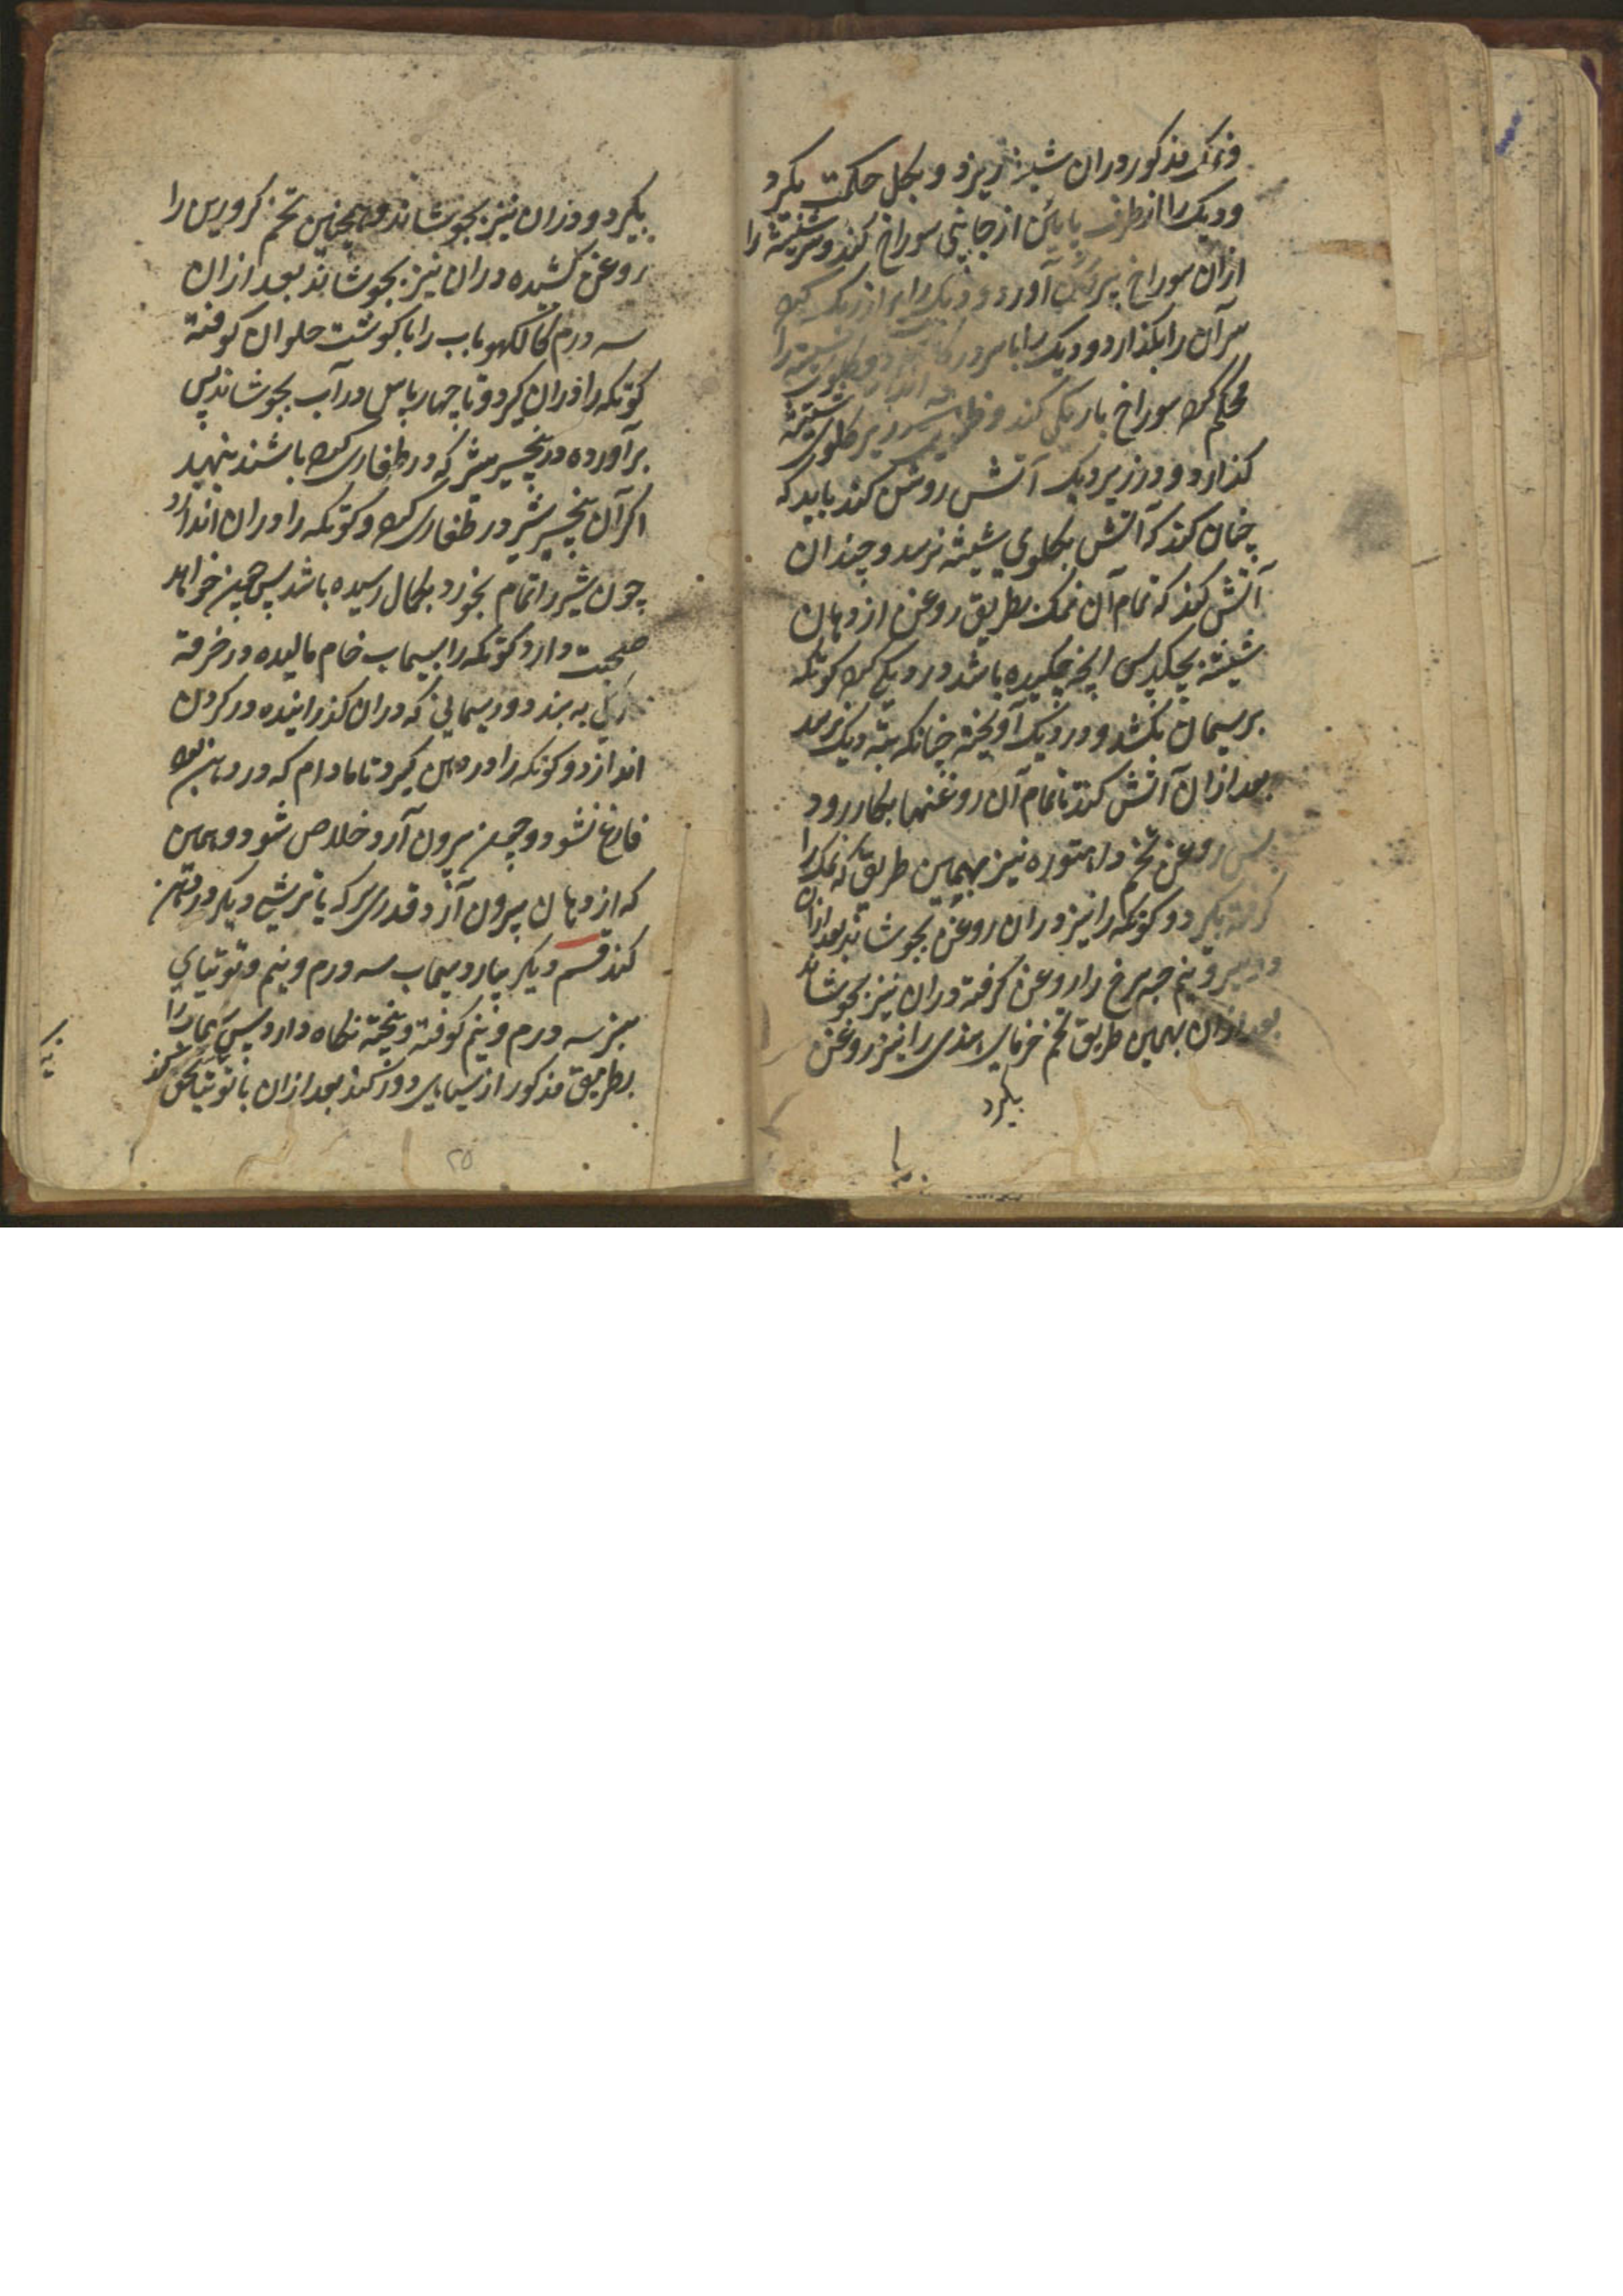 و نمک مذکور دران شیشه ریزد و بگل حکمت بگیرد
و دیک را از طرف پایین از جانبی سوراخ کند و سر شیشه را
ازان سوراخ بیرون آورد و دیک را پر از ریک کرده
سر آن را بگذارد و دیک را با سر در
محکم کرده سوراخ باریکی کند و ظرفی در زیر گلوی شیشه
گذارد و در زیر دیک آتش روشن کند باید که
چنان کند که آتش بگلوی شیشه نرسد و چندان
آتش کند که تمام آن نمک بطریق روغن از دهان
شیشه بچکد پس آنچه چکیده باشد در دیگی کرده گوتکه
بریسمان بکشد و در دیک آویخته چنانکه بته دیک نرسد
بعد ازان آتش کند تا تمام آن روغنها بکار رود
پس روغن تخم دهاتوره نیز بهمین طریق که نمک را
گرفته بگیرد و گوتکه را نیز دران روغن بجوشاند بعد ازان
دو سیر و نیم حبه سرخ را روغن گرفته دران نیز بجوشاند
بعد ازان بهمین طریق تخم خرمای هندی را نیز روغن
بگیرد
بگیرد و دران نیز بجوشاند و همچنین تخم کرورس را
روغن کشیده دران نیز بجوشاند بعد ازان
سه درم را با گوشت حلوان کوفته
گوتکه را دران گیرد و تا چهار پاس در آب بجوشاند پس
برآورده در پنج سیر شیر که در طغاری کرده باشند بنهد
اگر آن پنج سیر شیر در طغاری کرده و گوتکه را دران اندازد
چون شیر را تمام بخورد بکمال رسیده باشد پس چون خواهد
صحبت دارد گوتکه را بسیماب خام مالیده در خرقه
به بندد و ریسمانی که دران گذرانیده در گردن
اندازد و گوتکه را در دهن گیرد تا مادام که در دهن بود
فارغ نشود و چون بیرون آرد خلاص شود و همین
که از دهان بیرون آرد قدری سرکه یا ترشی دیگر در دهن
کند قسم دیگر بیارد سیماب سه درم و نیم و توتیای
سبز سه درم و نیم کوفته و بیخته نگاه دارد پس سیماب را
بطریق مذکور از سیاهی دور کند بعد ازان با توتیا سحق کند
۲۵